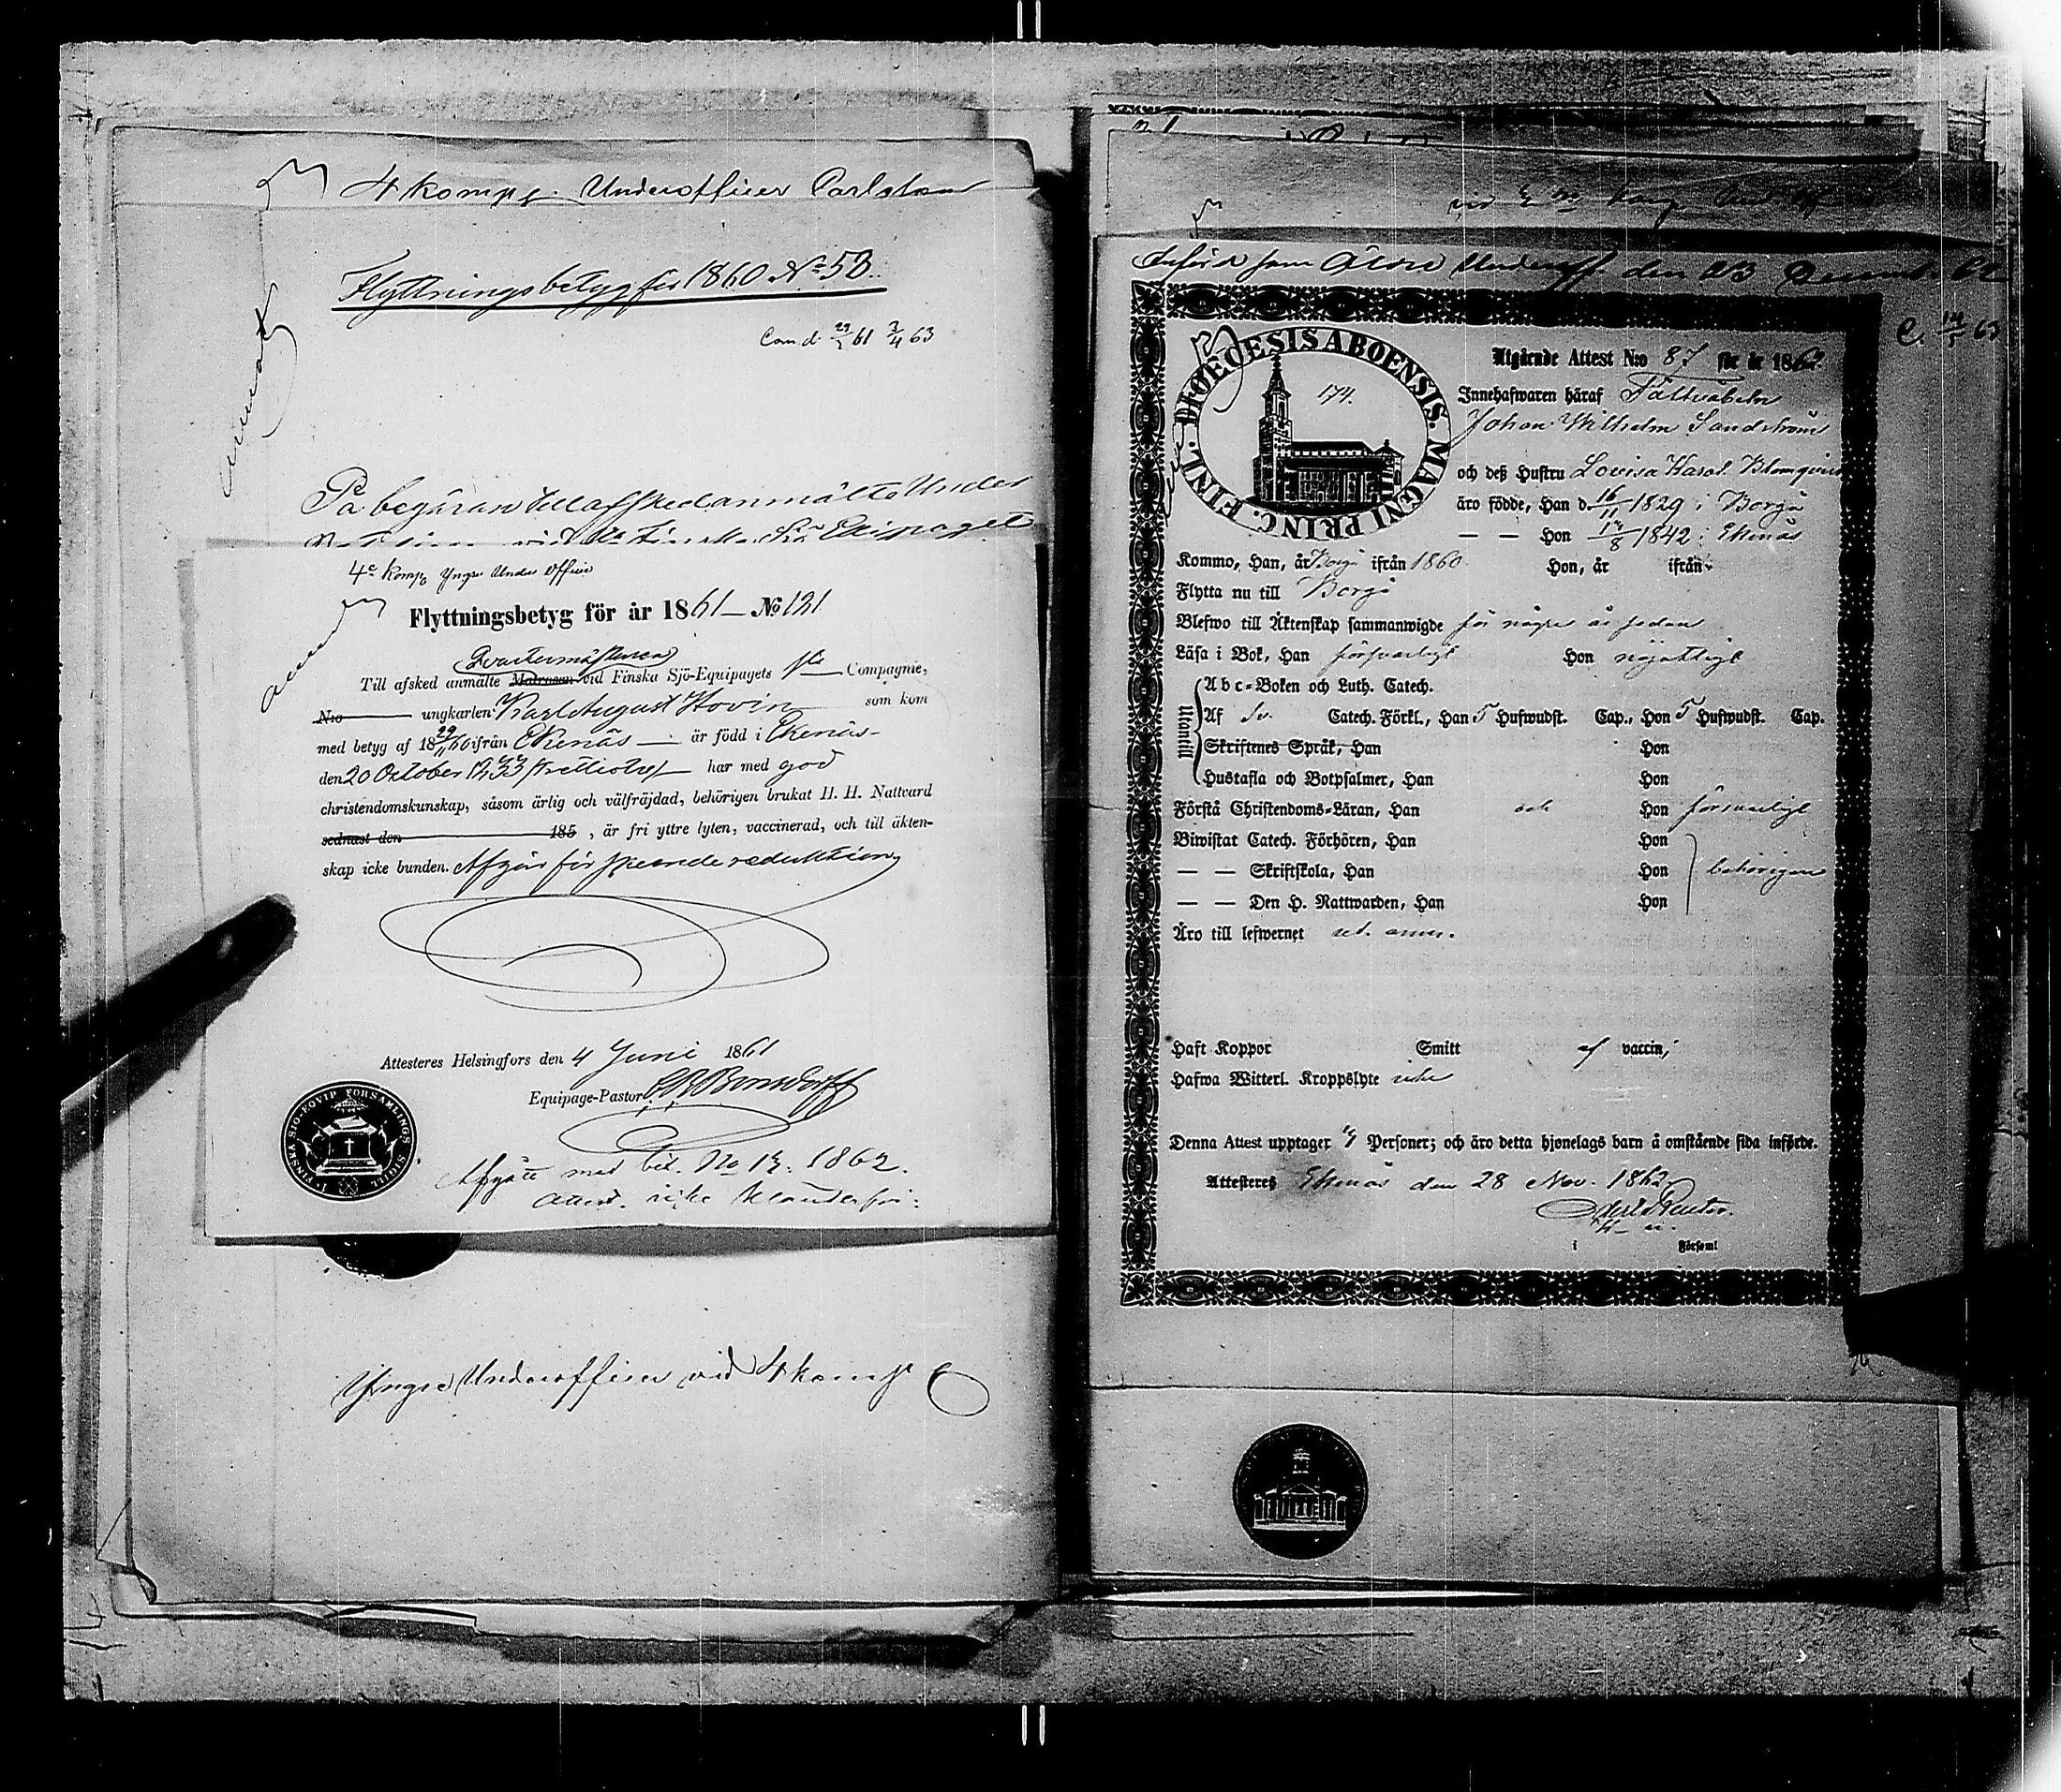 4 komp. Underofficer Carlstam
Flyttningsbetyg för 1860 No 53.
Com d. 29/5 61 3/4 63
På begäran till afsked anmälte Under
vid 1sta Finska Sjö Equipaget
4e Komp Yngre Under Officer
Flyttningsbetyg för år 1861 — No 121
Qvartermästaren
Till afsked anmälte Matrosen vid Finska Sjö-Equipagets 1sta Compagnie,
N:o ungkarlen Karl August Hovin som kom
med betyg af 18 29/11 60 ifrån Ekenäs — är född i Ekenäs
den 20 October 1833 (trettiotre) — har med god
christendomskunskap, såsom ärlig och välfräjdad, behörigen brukat H. H. Nattvard
sednast den 185 , är fri yttre lyten, vaccinerad, och till äkten-
skap icke bunden. Afgår för skeende reduktion
Attesteres Helsingfors den 4 Juni 1861
Equipage-Pastor Bonsdorff
I. FINSKA SJÖ-EQVIP. FÖRSAMLINGS SIGILL
Afgått med bet. No 13. 1862.
icke
Yngre Underofficer vid 4 komp
som Äldre Underoff. den 23 Decemb. 62
C. 14/5 63
DIOECESIS ABOENSIS. MAGNI PRINC. FINL.
174.
Utgående Attest N:o 87 för år 1862
Innehafwaren häraf Fältväbeln
Johan Wilhelm Sandström
och deß Hustru Lovisa Karol. Blomqvist
äro födde, Han d. 16/11 1829 i Borgå
— — Hon 14/8 1842 i Ekenäs
Kommo, Han, år Borgå ifrån 1860 Hon, år ifrån
Flytta nu till Borgå
Blefwo till Äktenskap sammanwigde för några år sedan
Läsa i Bok, Han försvarligt Hon nöjaktigt
Utantill
A b c-Boken och Luth. Catech.
Af Sv. Catech. Förkl., Han 5 Hufwudst. Cap., Hon 5 Hufwudst. Cap.
Skriftenes Språk, Han Hon
Hustafla och Botpsalmer, Han Hon
Förstå Christendoms-Läran, Han och Hon försvarligt
Biwistat Catech. Förhören, Han Hon
— — Skriftskola, Han Hon behörigen
— — Den H. Nattwarden, Han Hon
Äro till lefwernet
Haft Koppor Smitt af vaccin,
Hafwa Witterl. Kroppslyte icke
Denna Attest upptager Personer; och äro detta hjonelags barn å omstående sida införde.
Attesteres Ekenäs den 28 Nov. 1862
i Församl